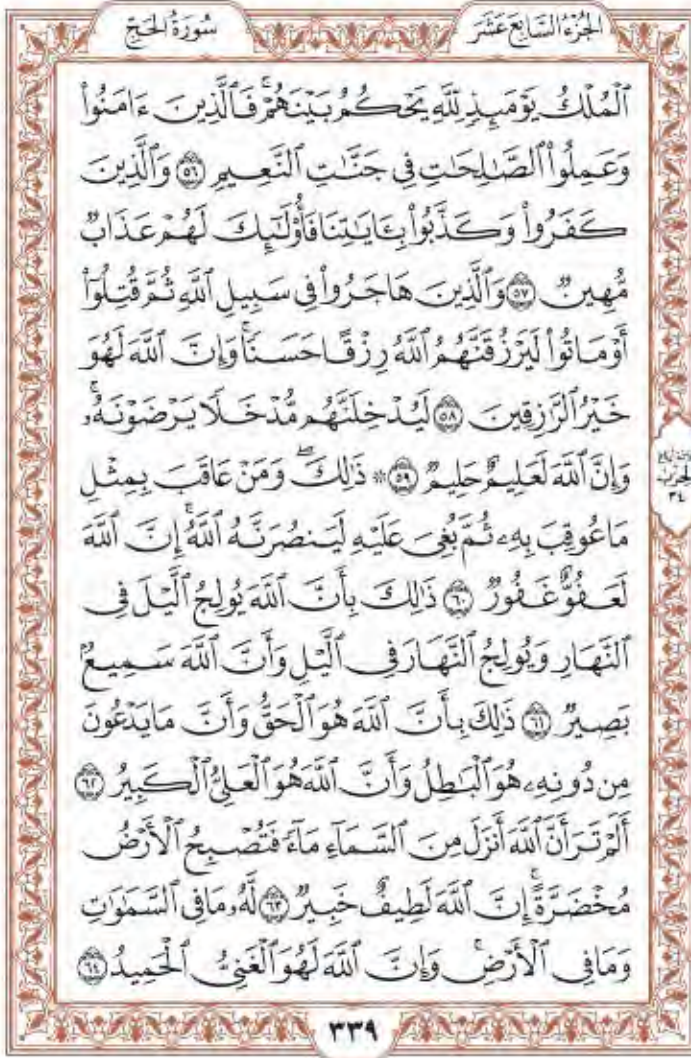 الجُزْءُ السَّابِعَ عَشَرَ
سُورَةُ الحَجِّ
ٱلْمُلْكُ يَوْمَئِذٍ لِّلَّهِ يَحْكُمُ بَيْنَهُمْۚ فَٱلَّذِينَ ءَامَنُواْ
وَعَمِلُواْ ٱلصَّٰلِحَٰتِ فِى جَنَّٰتِ ٱلنَّعِيمِ ۝٥٦ وَٱلَّذِينَ
كَفَرُواْ وَكَذَّبُواْ بِـَٔايَٰتِنَا فَأُوْلَٰٓئِكَ لَهُمْ عَذَابٌ
مُّهِينٌ ۝٥٧ وَٱلَّذِينَ هَاجَرُواْ فِى سَبِيلِ ٱللَّهِ ثُمَّ قُتِلُوٓاْ
أَوْ مَاتُواْ لَيَرْزُقَنَّهُمُ ٱللَّهُ رِزْقًا حَسَنًاۚ وَإِنَّ ٱللَّهَ لَهُوَ
خَيْرُ ٱلرَّٰزِقِينَ ۝٥٨ لَيُدْخِلَنَّهُم مُّدْخَلًا يَرْضَوْنَهُۥۚ
وَإِنَّ ٱللَّهَ لَعَلِيمٌ حَلِيمٌ ۝٥٩ ۞ ذَٰلِكَۖ وَمَنْ عَاقَبَ بِمِثْلِ
مَا عُوقِبَ بِهِۦ ثُمَّ بُغِىَ عَلَيْهِ لَيَنصُرَنَّهُ ٱللَّهُۚ إِنَّ ٱللَّهَ
لَعَفُوٌّ غَفُورٌ ۝٦٠ ذَٰلِكَ بِأَنَّ ٱللَّهَ يُولِجُ ٱلَّيْلَ فِى
ٱلنَّهَارِ وَيُولِجُ ٱلنَّهَارَ فِى ٱلَّيْلِ وَأَنَّ ٱللَّهَ سَمِيعٌۢ
بَصِيرٌ ۝٦١ ذَٰلِكَ بِأَنَّ ٱللَّهَ هُوَ ٱلْحَقُّ وَأَنَّ مَا يَدْعُونَ
مِن دُونِهِۦ هُوَ ٱلْبَٰطِلُ وَأَنَّ ٱللَّهَ هُوَ ٱلْعَلِىُّ ٱلْكَبِيرُ ۝٦٢
أَلَمْ تَرَ أَنَّ ٱللَّهَ أَنزَلَ مِنَ ٱلسَّمَآءِ مَآءً فَتُصْبِحُ ٱلْأَرْضُ
مُخْضَرَّةًۚ إِنَّ ٱللَّهَ لَطِيفٌ خَبِيرٌ ۝٦٣ لَّهُۥ مَا فِى ٱلسَّمَٰوَٰتِ
وَمَا فِى ٱلْأَرْضِۚ وَإِنَّ ٱللَّهَ لَهُوَ ٱلْغَنِىُّ ٱلْحَمِيدُ ۝٦٤
الحزب
٣٤
٣٣٩